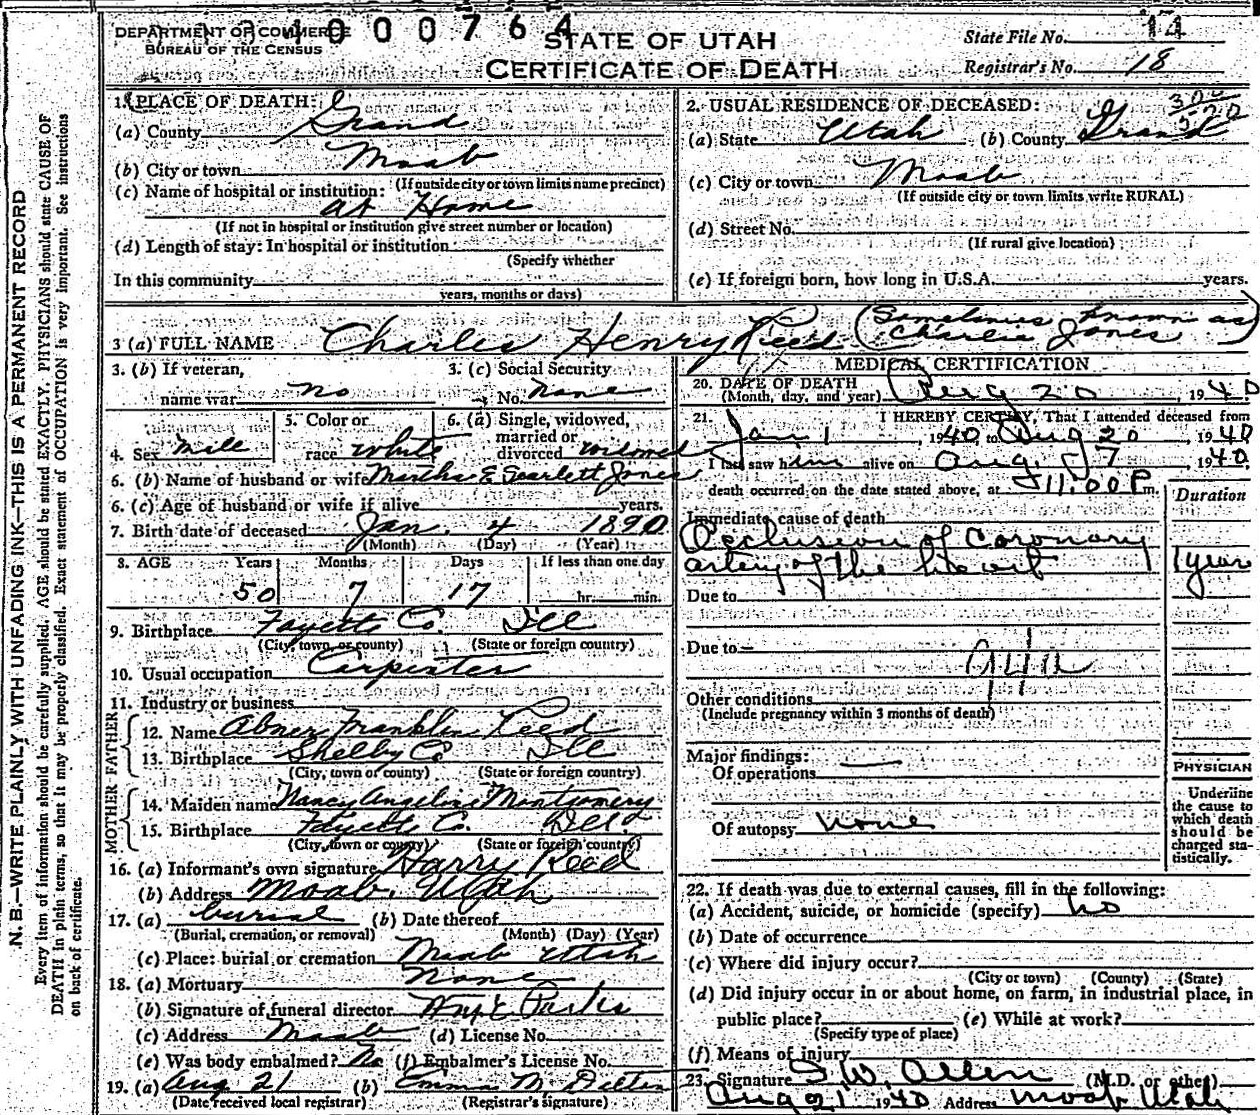 N. B.—WRITE PLAINLY WITH UNFADING INK—THIS IS A PERMANENT RECORD
Every item of information should be carefully supplied. AGE should be stated EXACTLY. PHYSICIANS should state CAUSE OF
DEATH in plain terms, so that it may be properly classified. Exact statement of OCCUPATION is very important. See instructions
on back of certificate.
DEPARTMENT OF COMMERCE
BUREAU OF THE CENSUS
000764
STATE OF UTAH
CERTIFICATE OF DEATH
State File No. 14
Registrar's No. 18
1. PLACE OF DEATH:
(a) County Grand
(b) City or town Moab
(If outside city or town limits name precinct)
(c) Name of hospital or institution:
at Home
(If not in hospital or institution give street number or location)
(d) Length of stay: In hospital or institution
(Specify whether
In this community
years, months or days)
2. USUAL RESIDENCE OF DECEASED:
(a) State Utah (b) County Grand
(c) City or town Moab
(If outside city or town limits write RURAL)
(d) Street No.
(If rural give location)
(e) If foreign born, how long in U.S.A. years.
3 (a) FULL NAME Charles Henry Reed (Sometimes known as
Charlie Jones)
3. (b) If veteran,
name war no
3. (c) Social Security
No. None
4. Sex Male
5. Color or
race White
6. (a) Single, widowed,
married or
divorced widowed
6. (b) Name of husband or wife Martha E Scarlett Jones
6. (c) Age of husband or wife if alive years.
7. Birth date of deceased Jan. 4 1890
(Month) (Day) (Year)
8. AGE Years Months Days If less than one day
50 7 17 hr. min.
9. Birthplace Fayette Co. Ill
(City, town, or county) (State or foreign country)
10. Usual occupation Carpenter
11. Industry or business
FATHER
12. Name Abner Franklin Reed
13. Birthplace Shelby Co Ill
(City, town or county) (State or foreign country)
MOTHER
14. Maiden name Nancy Angeline Montgomery
15. Birthplace Fayette Co. Ill.
(City, town or county) (State or foreign country)
16. (a) Informant's own signature Harry Reed
(b) Address Moab, Utah
17. (a) burial (b) Date thereof
(Burial, cremation, or removal) (Month) (Day) (Year)
(c) Place: burial or cremation Moab Utah
18. (a) Mortuary None
(b) Signature of funeral director
(c) Address Moab (d) License No.
(e) Was body embalmed? No (f) Embalmer's License No.
19. (a) Aug 21 (b) Emma M.
(Date received local registrar) (Registrar's signature)
MEDICAL CERTIFICATION
20. DATE OF DEATH
(Month, day, and year) Aug 20, 1940
21. I HEREBY CERTIFY, That I attended deceased from
Jan 1, 1940 to Aug 20, 1940
I last saw him alive on Aug. 1940.
death occurred on the date stated above, at 11:00 P m.
Duration
Immediate cause of death
Occlusion of Coronary
artery of the heart 1 year
Due to
Due to —
94a
Other conditions
(Include pregnancy within 3 months of death)
Major findings: —
Of operations
Of autopsy none
PHYSICIAN
Underline
the cause to
which death
should be
charged sta-
tistically.
22. If death was due to external causes, fill in the following:
(a) Accident, suicide, or homicide (specify) no
(b) Date of occurrence
(c) Where did injury occur?
(City or town) (County) (State)
(d) Did injury occur in or about home, on farm, in industrial place, in
public place? (e) While at work?
(Specify type of place)
(f) Means of injury
23. Signature Allen (M.D. or other)
Aug 21 1940 Address Moab Utah